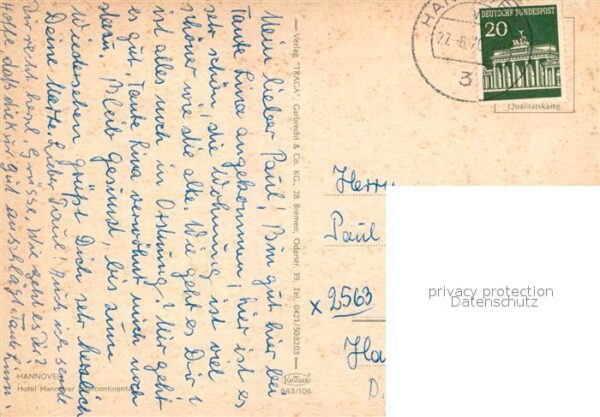 Mein lieber Paul! Bin gut hier bei
Tante Lina angekommen, hier ist es
sehr schön, die Wohnung ist viel
schöner wie die alte. Wie geht es Dir?
ist alles noch in Ordnung? Mir geht
es gut, Tante Lina verwöhnt mich noch
Bleib gesund, bis zum
Wiedersehen grüßt Dich sehr herzlich
Deine Lieber Paul! Auch ich sende
Dir recht herzl. Grüsse. Wie geht es Dir?
Hoffe, daß dir gut
Verlag "TRAGA", Garbrecht & Co. KG., 28 Bremen, Oderstr. 39, Tel. 0421/508203
HANNOVER
Hotel Hannover Intercontinental
Krüger
943/106
27.-8.
3
DEUTSCHE BUNDESPOST
20
Qualitätskarte
Herrn
Paul
x 2563
Ha
privacy protection
Datenschutz